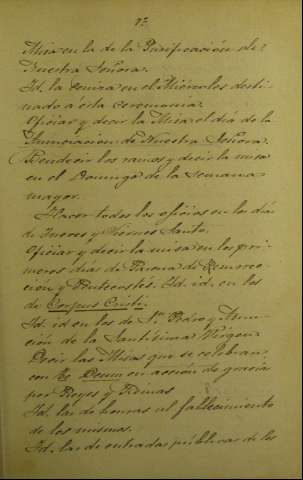 Misa en la de la Purificación de
Nuestra Señora.
Id. la ceniza en el Miércoles desti-
nado a esta ceremonia.
Oficiar y decir la Misa el día de la
de Nuestra Señora.
Bendecir los ramos y decir la misa
en el Domingo de la Semana
mayor.
Hacer todos los oficios en los días
de Jueves y Viernes Santo.
Oficiar y decir la misa en los pri-
meros días de Pascua de Resurrec-
ción y Pentecostés. Id. id. en los
de Corpus Cristi.
Id. id en los de Sn. Pedro y Asun-
ción de la Santísima Virgen
Decir las Misas que se celebran
con Te Deum en acción de gracias
por Reyes y Reinas
Id. las de honras al fallecimiento
de los mismos.
Id. las de entradas públicas de los